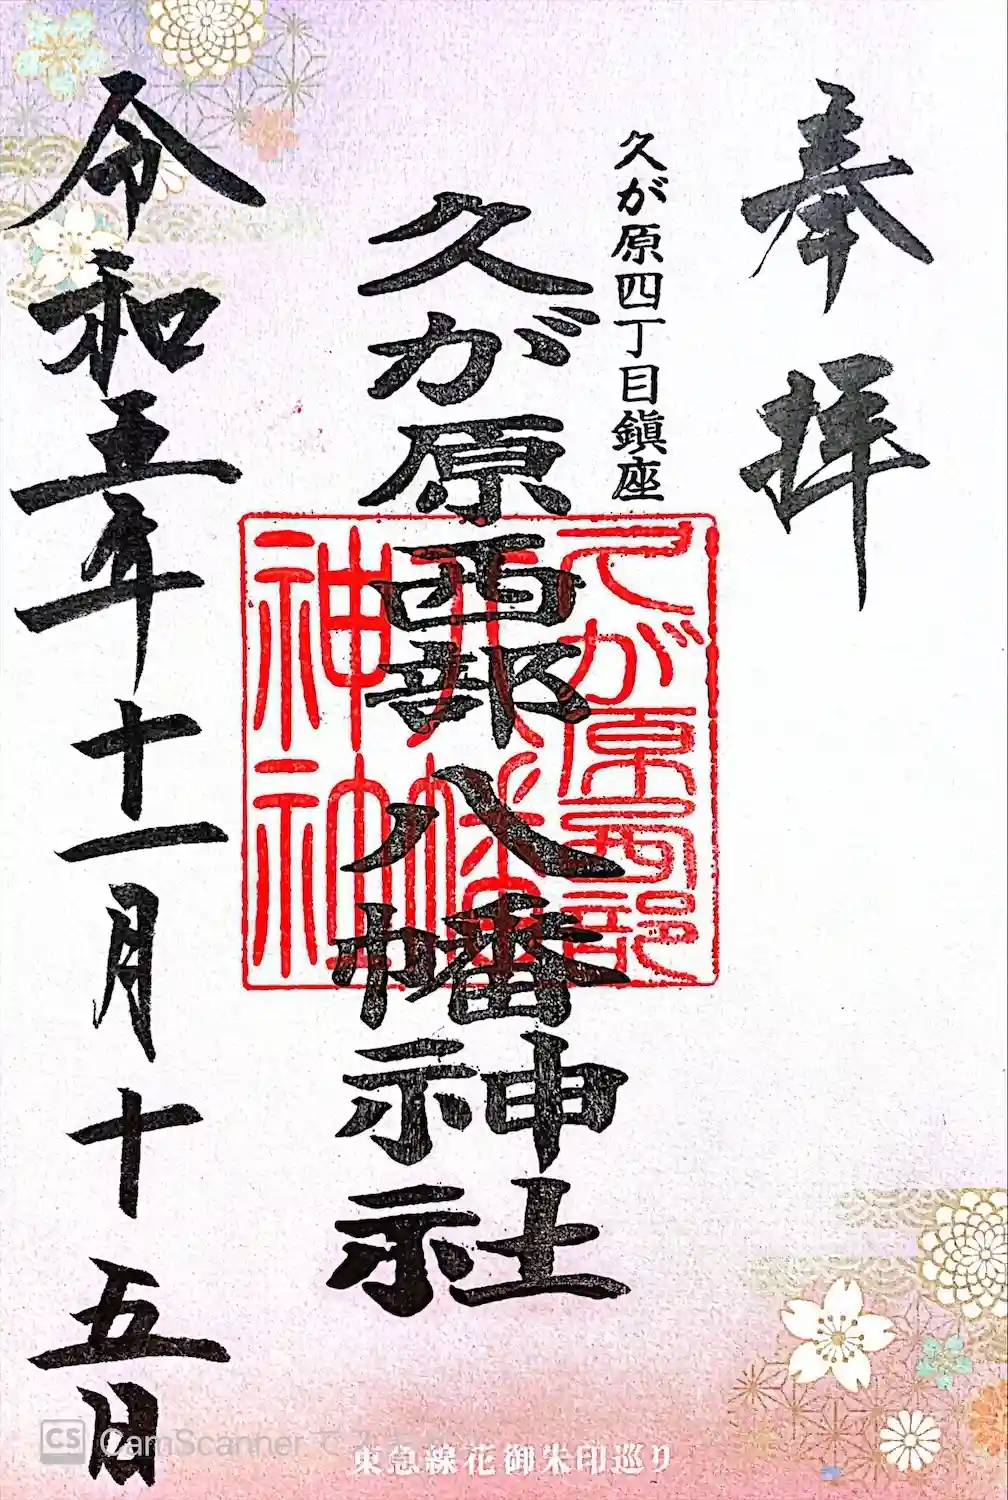 奉拝
久が原四丁目鎮座
久が原西部八幡神社
久が原西部
八幡
神社
令和五年十一月十五日
東急線花御朱印巡り
CS CamScanner で